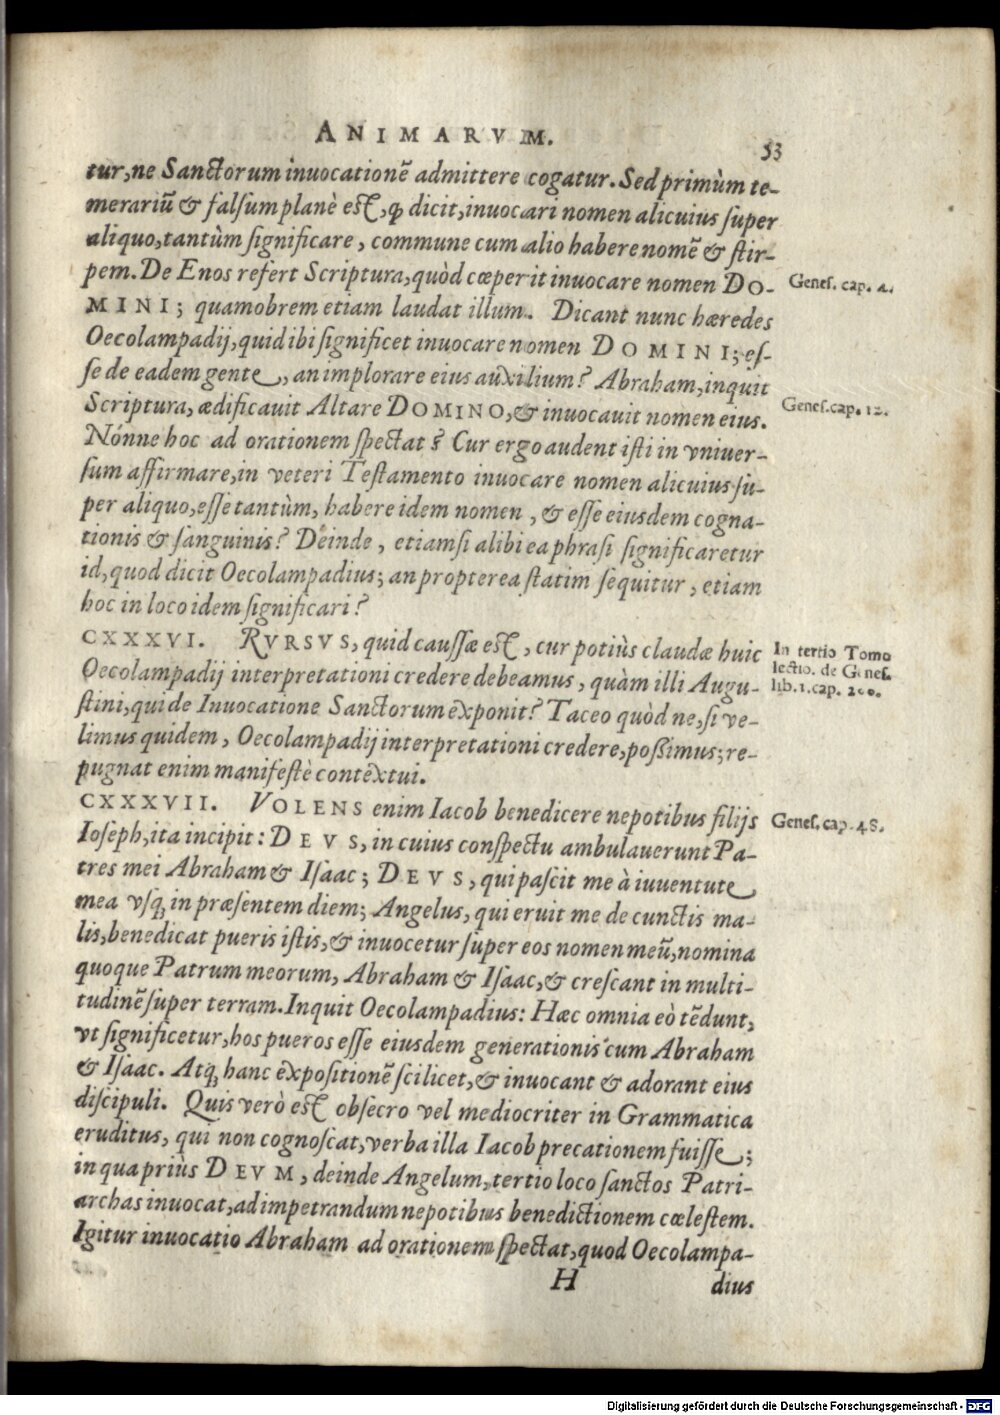 ANIMARVM.
53
tur, ne Sanctorum inuocationē admittere cogatur. Sed primùm te-
merariū & falsum planè est, ꝙ dicit, inuocari nomen alicuius super
aliquo, tantùm significare, commune cum alio habere nomē & stir-
pem. De Enos refert Scriptura, quòd cœperit inuocare nomen DO-
Genes. cap. 4.
MINI; quamobrem etiam laudat illum. Dicant nunc hæredes
Oecolampadij, quid ibi significet inuocare nomen DOMINI; es-
se de eadem gente, an implorare eius auxilium? Abraham, inquit
Scriptura, ædificauit Altare DOMINO, & inuocauit nomen eius.
Genes. cap. 12.
Nónne hoc ad orationem spectat? Cur ergo audent isti in vniuer-
sum affirmare, in veteri Testamento inuocare nomen alicuius su-
per aliquo, esse tantùm, habere idem nomen, & esse eiusdem cogna-
tionis & sanguinis? Deinde, etiamsi alibi ea phrasi significaretur
id, quod dicit Oecolampadius; an propterea statim sequitur, etiam
hoc in loco idem significari?
CXXXVI. RVRSVS, quid caussæ est, cur potiùs claudæ huic
In tertio Tomo
Oecolampadij interpretationi credere debeamus, quàm illi Augu-
lectio. de Genes.
lib. 1. cap. 200.
stini, qui de Inuocatione Sanctorum exponit? Taceo quòd ne, si ve-
limus quidem, Oecolampadij interpretationi credere, poßimus; re-
pugnat enim manifestè contextui.
CXXXVII. VOLENS enim Iacob benedicere nepotibus filijs
Genes. cap. 48.
Ioseph, ita incipit: DEVS, in cuius conspectu ambulauerunt Pa-
tres mei Abraham & Isaac; DEVS, qui pascit me à iuuentute
mea vsqꝫ in præsentem diem; Angelus, qui eruit me de cunctis ma-
lis, benedicat pueris istis, & inuocetur super eos nomen meū, nomina
quoque Patrum meorum, Abraham & Isaac, & crescant in multi-
tudinē super terram. Inquit Oecolampadius: Hæc omnia eò tēdunt,
vt significetur, hos pueros esse eiusdem generationis cum Abraham
& Isaac. Atqꝫ hanc expositionē scilicet, & inuocant & adorant eius
discipuli. Quis verò est obsecro vel mediocriter in Grammatica
eruditus, qui non cognoscat, verba illa Iacob precationem fuisse;
in qua priùs DEVM, deinde Angelum, tertio loco sanctos Patri-
archas inuocat, ad impetrandum nepotibus benedictionem cælestem.
Igitur inuocatio Abraham ad orationem spectat, quod Oecolampa-
H
dius
Digitalisierung gefördert durch die Deutsche Forschungsgemeinschaft - DFG